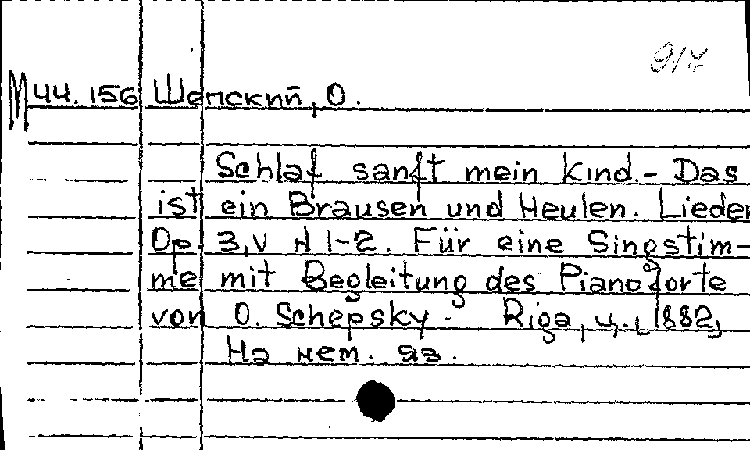 917
М 44.156 Шепский, О.
Schlaf sanft mein kind. - Das
ist ein Brausen und Heulen. Lieder
Op. 3, V N 1-2. Für eine Singstim-
me mit Begleitung des Pianoforte
von O. Schepsky - Riga, ц., 1882,
На нем. яз.